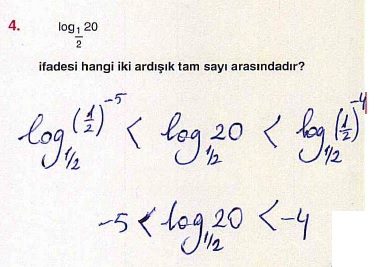 4. log_{1/2} 20
ifadesi hangi iki ardışık tam sayı arasındadır?
log_{1/2} (1/2)^{-5} < log_{1/2} 20 < log_{1/2} (1/2)^{-4}
-5 < log_{1/2} 20 < -4